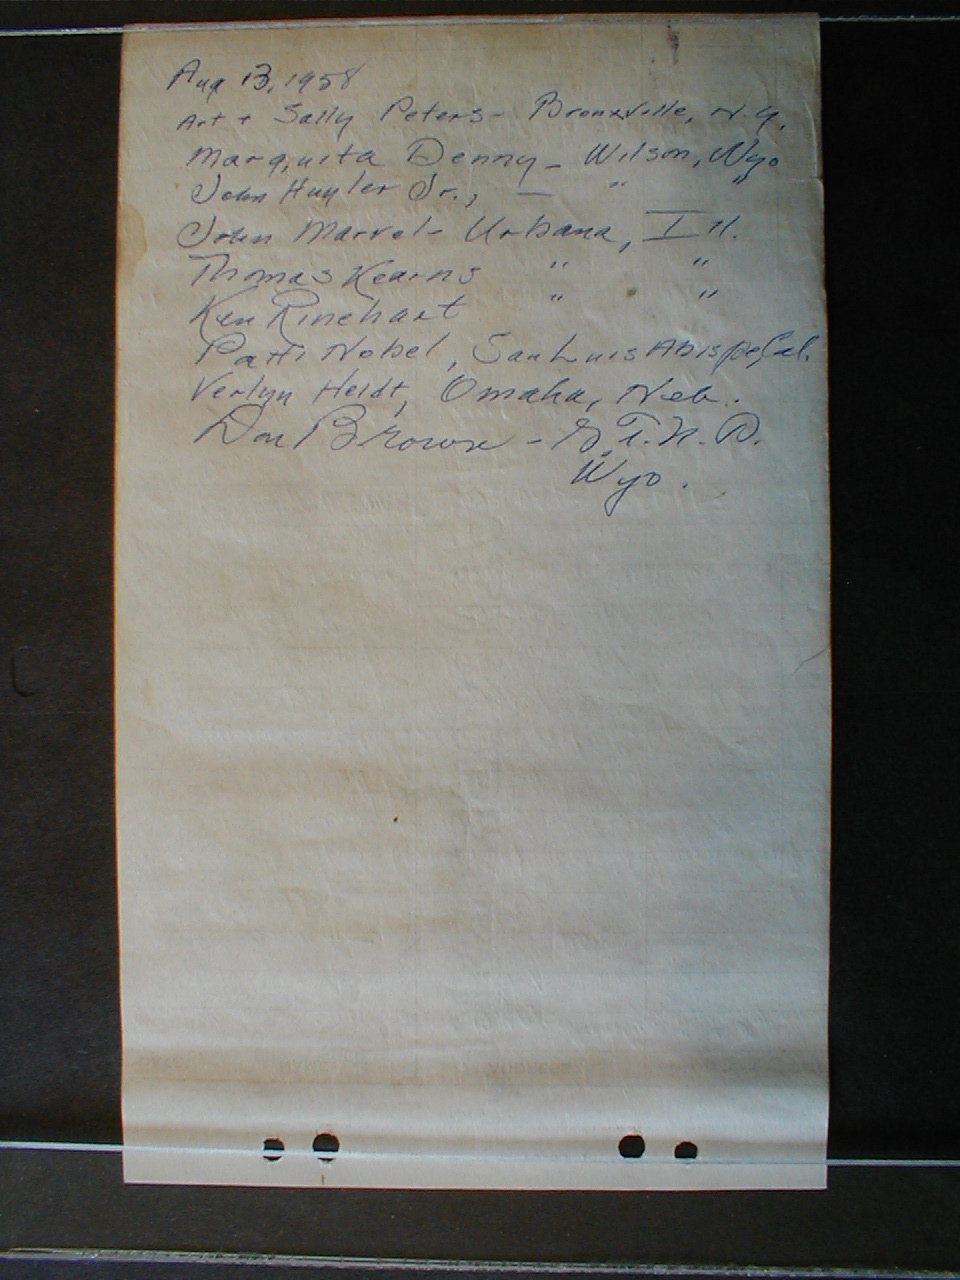 Aug 13, 1958
Art + Sally Peters - Bronxville, N.Y.
Marquita Denny - Wilson, Wyo
John Huyler Jr., — " "
John Marvel - Urbana, Ill.
Thomas Kearns " "
Ken Rinehart " "
Patti Nobel, San Luis Obispo, Cal.
Verlyn Heldt, Omaha, Neb.
Don Brown - G.T.N.P.
Wyo.